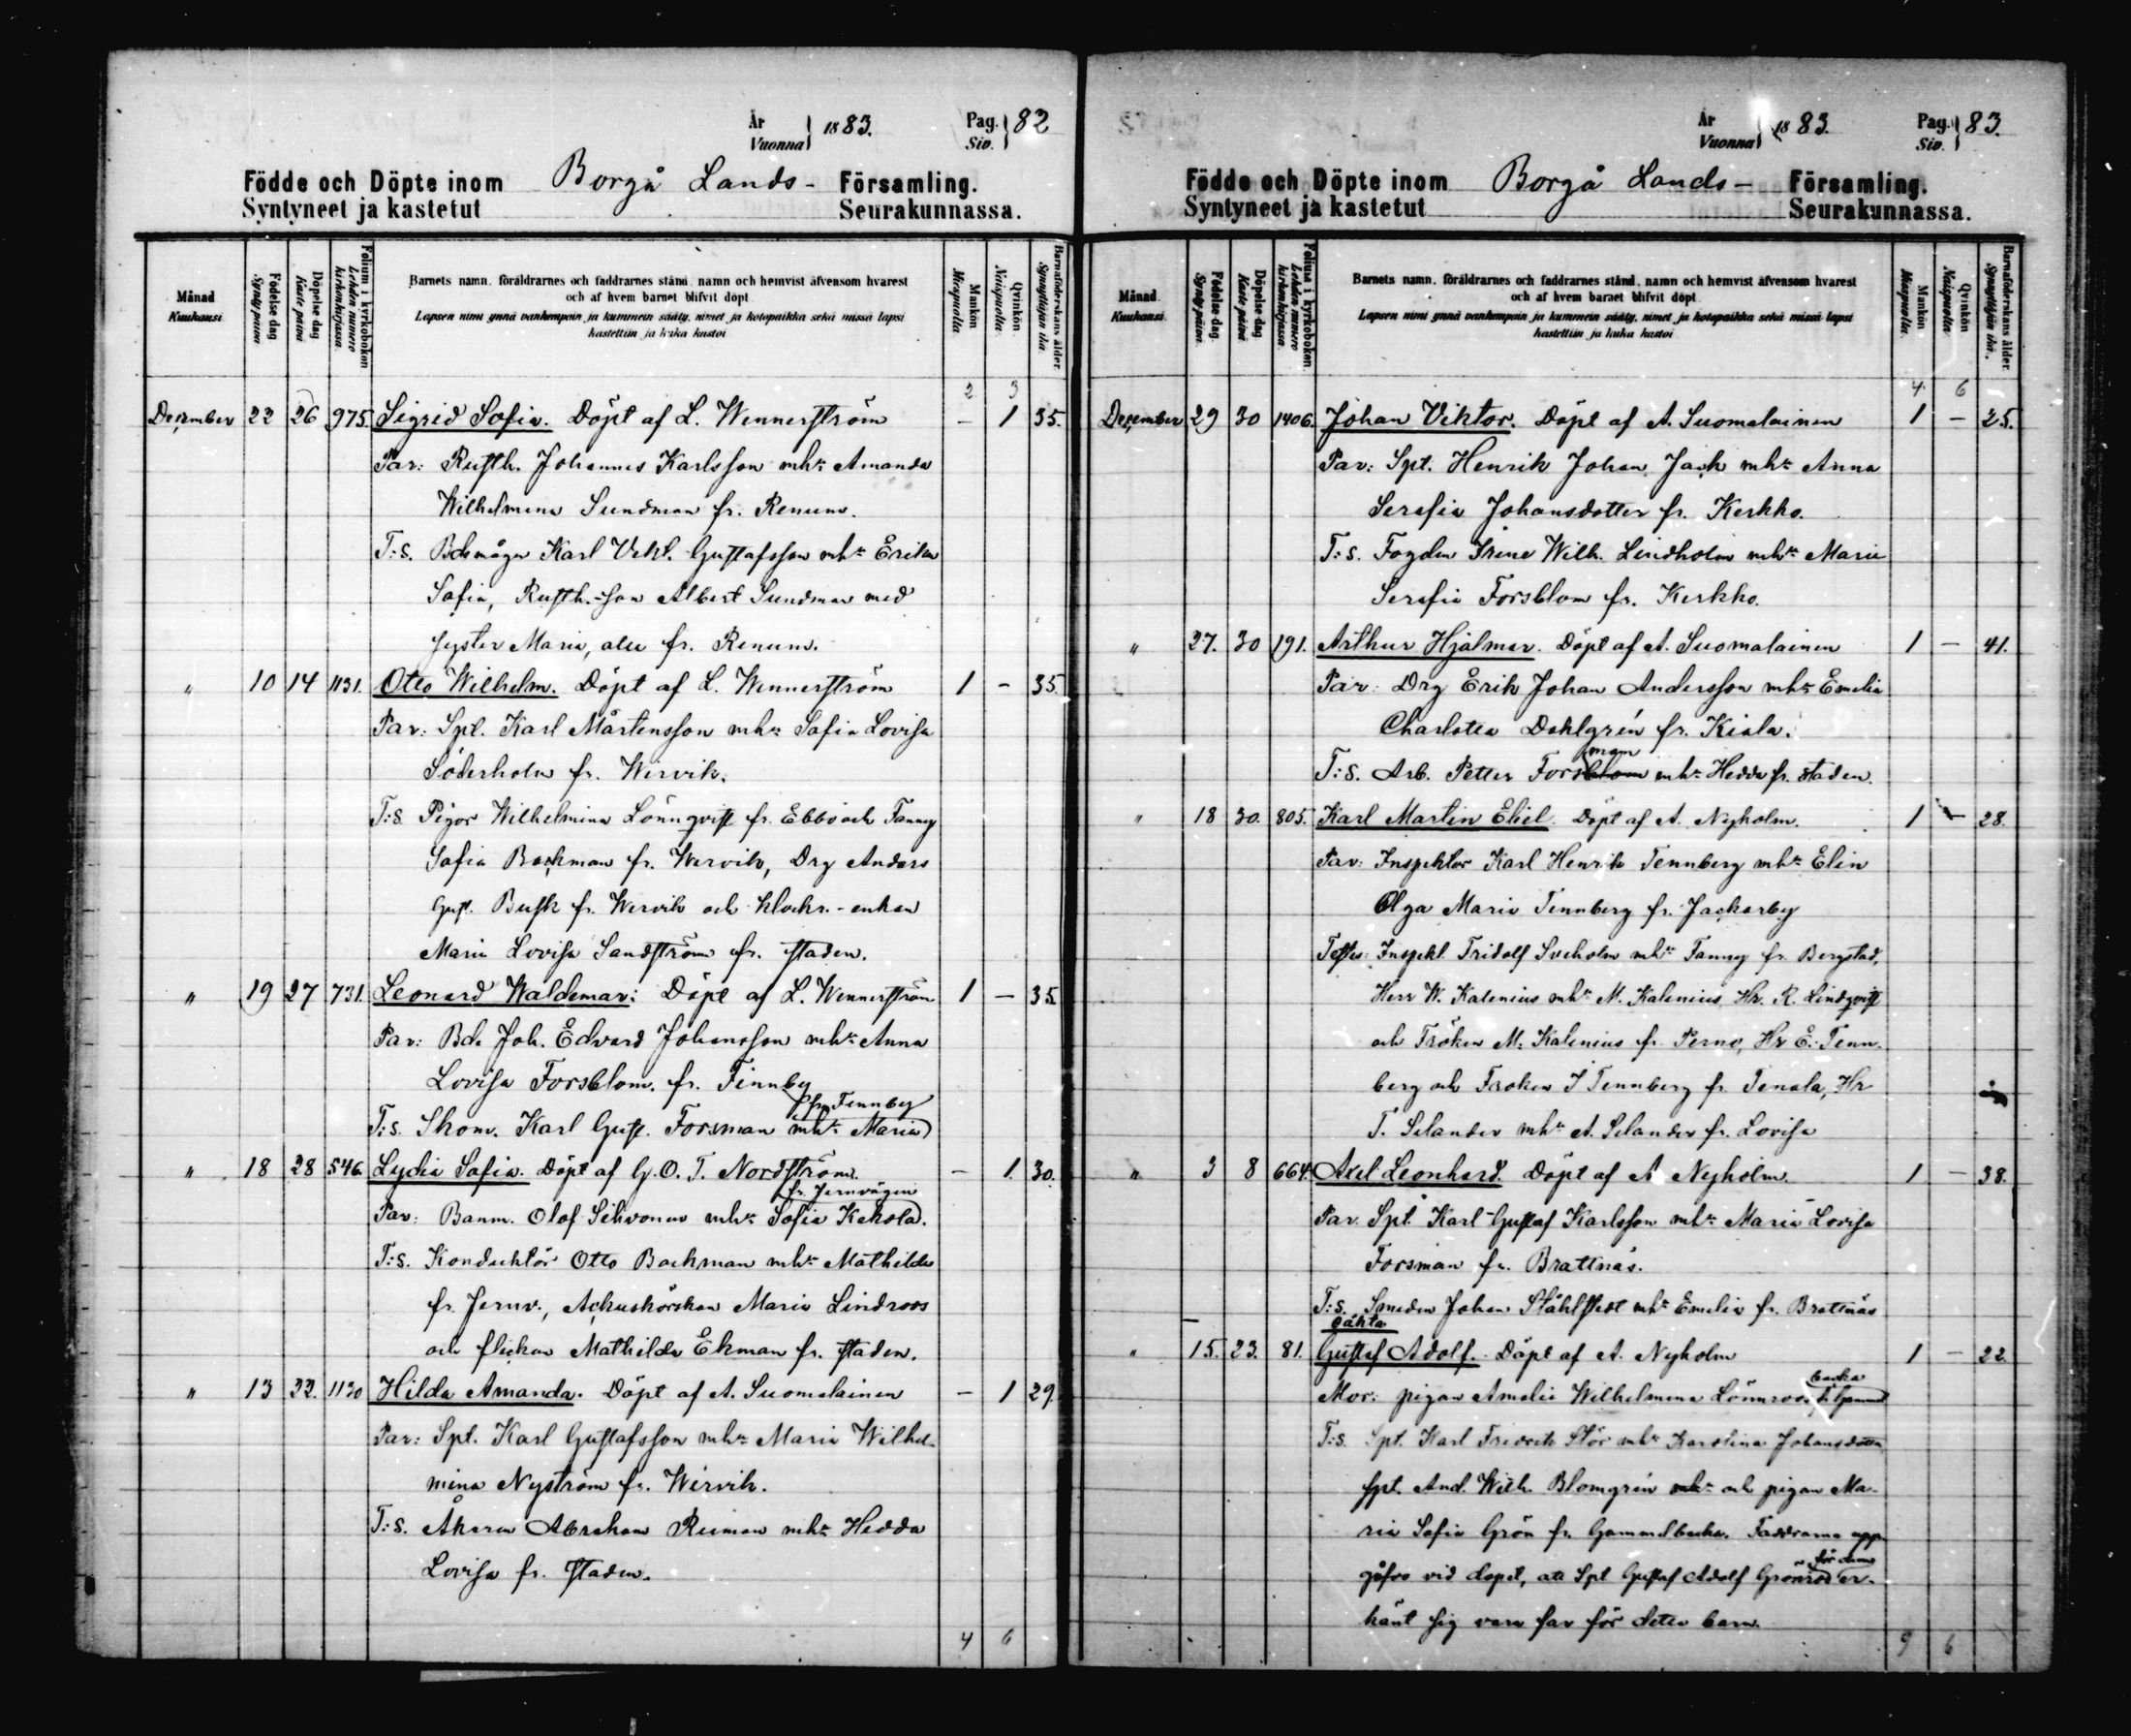 År
Vuonna } 1883.
Pag.
Siv. } 82
Födde och Döpte inom Borgå Lands- Församling.
Syntyneet ja kastetut Seurakunnassa.
Månad
Kuukausi
Födelse dag
Syntypäivä
Döpelse dag
Kaste päivä
Folium i kyrkoboken
Lehden numero
kirkonkirjassa
Barnets namn, föräldrarnes och faddrarnes stånd, namn och hemvist äfvensom hvarest
och af hvem barnet blifvit döpt
Lapsen nimi ynnä vanhempain ja kummein sääty, nimet ja kotopaikka sekä missä lapsi
kastettiin ja kuka kastoi
Mankön
Miespuolta
Qvinkön
Naispuolta
Barnaföderskans ålder.
Synnyttäjän ikä.
2 3
December 22 26 975. Sigrid Sofia. Döpt af L. Wennerström – 1 35.
Par: Rusth. Johannes Karlsson mhr Amanda
Wilhelmina Sundman fr. Renum.
T:s. Bdemågen Karl Vikt. Gustafsson mhr Erika
Sofia, Rusth.-son Albert Sundman med
syster Maria, alla fr. Renum.
" 10 14 1131. Otto Wilhelm. Döpt af L. Wennerström 1 – 35.
Par: Spt. Karl Mårtensson mhr Sofia Lovisa
Söderholm fr. Wervik.
T:s. Pigor Wilhelmina Lönnqvist fr. Ebbo och Fanny
Sofia Backman fr. Wervik, Drg Anders
Gust. Busk fr. Wervik och klockr.-enkan
Maria Lovisa Sandström fr. staden.
" 19 27 731. Leonard Waldemar: Döpt af L. Wennerström 1 – 35
Par: Bde Joh. Edvard Johansson mhr Anna
Lovisa Forsblom. fr. Finnby
fr. Finnby
T:s. Skom. Karl Gust. Forsman mhr Maria
" 18 28 546. Lydia Sofia. Döpt af G. O. T. Nordström. – 1. 30.
fr. Jernvägen
Par: Banm. Olof Sihvonen mhr Sofia Kekola.
T:s. Konduktör Otto Backman mhr Mathilda
fr. Jernv., Maria Lindroos
och flickan Mathilda Ekman fr. staden.
" 13 22. 1130 Hilda Amanda. Döpt af A. Suomalainen – 1 29.
Par: Spt. Karl Gustafsson mhr Maria Wilhel-
mina Nyström fr. Wervik.
T:s. Åkaren Abraham Reiman mhr Hedda
Lovisa fr. staden.
4 6
År
Vuonna } 1883.
Pag.
Siv. } 83.
Födde och Döpte inom Borgå Lands- Församling.
Syntyneet ja kastetut Seurakunnassa.
Månad
Kuukausi
Födelse dag.
Syntypäivä.
Döpelse dag
Kaste päivä
Folium i kyrkoboken.
Lehden numero
kirkonkirjassa.
Barnets namn, föräldrarnes och faddrarnes stånd, namn och hemvist äfvensom hvarest
och af hvem barnet blifvit döpt
Lapsen nimi ynnä vanhempain ja kummein sääty, nimet ja kotopaikka sekä missä lapsi
kastettiin ja kuka kastoi
Mankön
Miespuolta.
Qvinkön
Naispuolta
Barnaföderskans ålder
Synnyttäjän ikä.
4. 6
December 29 30 1406. Johan Viktor. Döpt af A. Suomalainen 1 – 25.
Par: Spt. Henrik Johan Jack mhr Anna
Serafia Johansdotter fr. Kerkko.
T:s. Fogden Wilh. Lindholm mhr Maria
Serafia Forsblom fr. Kerkko.
" 27. 30 191. Arthur Hjalmar. Döpt af A. Suomalainen 1 – 41.
Par: Drg Erik Johan Andersson mhr Emelia
Charlotta Dahlgren fr. Kiala.
man
T:s. Arb. Petter Forsblom mhr Hedda fr. staden.
" 18 30. 805. Karl Martin Eliel. Döpt af A. Nyholm. 1 – 28.
Par: Inspektor Karl Henrik Tennberg mhr Elin
Olga Maria Tennberg fr. Jackarby
Testes: Inspekt. Fridolf Sveholm mhr Fanny fr. Bergstad,
Herr W. Kalenius mhr M. Kalenius, Hr. R. Lindqvist
och Fröken M. Kalenius fr. Perno, Hr E. Tenn-
berg och Fröken I Tennberg fr. Tenala, Hr
T. Selander mhr A. Selander fr. Lovisa
" 3 8 664. Axel Leonhard. Döpt af A Nyholm. 1 – 38.
Par. Spt. Karl Gustaf Karlsson mhr Maria Lovisa
Forsman fr. Brattnäs.
T:s. Smeden Johan Ståhlstedt mhr Emelia fr. Brattnäs
oäkta
" 15. 23. 81. Gustaf Adolf. Döpt af A. Nyholm 1 – 22.
backa
Mor: pigan Amalia Wilhelmina Lönnroos fr. Gammel
T:s. Spt. Karl Fredrik Stör mhr Karolina Johansdotter,
spt. And. Wilh. Blomgren mhr och pigan Ma-
ria Sofia Grön fr. Gammelbacka. Faddrarna upp-
för dem
gåfvo vid dopet, att Spt Gustaf Adolf Grönroos er-
känt sig vara far för detta barn.
9 6